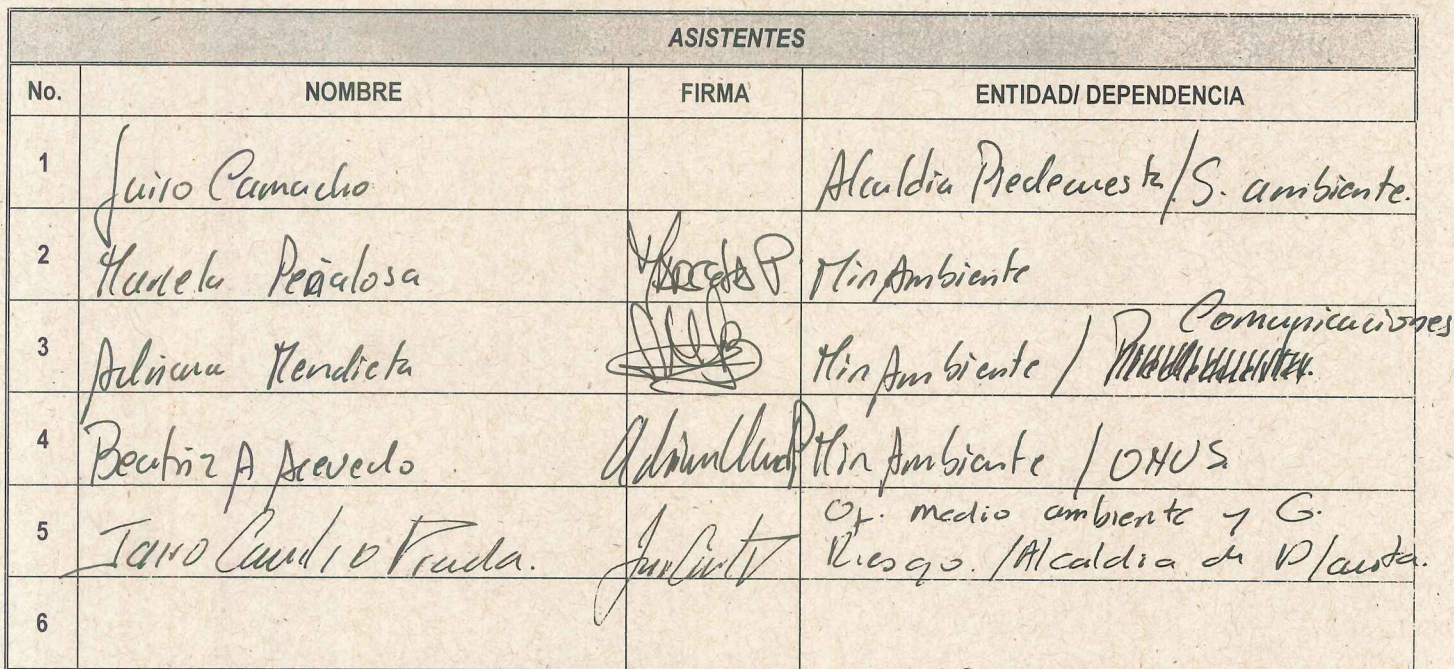 ASISTENTES
No. NOMBRE FIRMA ENTIDAD/ DEPENDENCIA
1 Jairo Camacho Alcaldia Piedecuesta/S. ambiente.
2 Mariela Peñalosa MinAmbiente
3 Adriana Mendieta MinAmbiente / Comunicaciones
4 Beatriz A Acevedo MinAmbiente /
5 Jairo Of. medio ambiente y G.
Riesgo. /Alcaldia de P/cuesta.
6